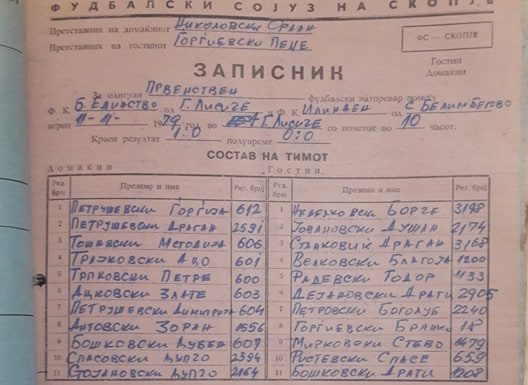 ФУДБАЛСКИ СОЈУЗ НА СКОПЈЕ
Претставник на домаќинот Николовски
Претставник на гостинот Ѓорѓиевски Пеце
ФС — СКОПЈЕ
ЗАПИСНИК
Гостин
Домаќин
За одигран Првенствен фудбалски натпревар помеѓу
Ф. К. Б. Единство од Г. Лисиче и Ф. К. Илинден од с. Белимбегово
игран 11-11- 1979 во Г. Лисиче со почеток во 10 часот.
Краен резултат 1:0 полувреме 0:0
СОСТАВ НА ТИМОТ
Домаќин Гостин
Ред. број Презиме и име Рег. број Ред. број Презиме и име Рег. број
1 Петрушевски Ѓорѓија 612 1 Борче 3198
2 Петрушевски Драган 2591 2 Јовановски Душан 2174
3 Тошевски Методија 606 3 Станковиќ Драган 3168
4 Трајковски Ацо 601 4 Велковски Благоја 1200
5 Трпковски Петре 600 5 Радевски Тодор 1133
6 Ацковски Злате 603 6 Дејановски Драги 2905
7 Петрушевски Димитрија 604 7 Петровски Боголуб 2240
8 Антовски Зоран 1556 8 Ѓорѓиевски Бранко
9 Бошковски 607 9 Мирковски Стево 1479
10 Спасовски Љупчо 2594 10 Ристевски Спасе 659
11 Стојановски Љупчо 2164 11 Бошковски Драги 1208